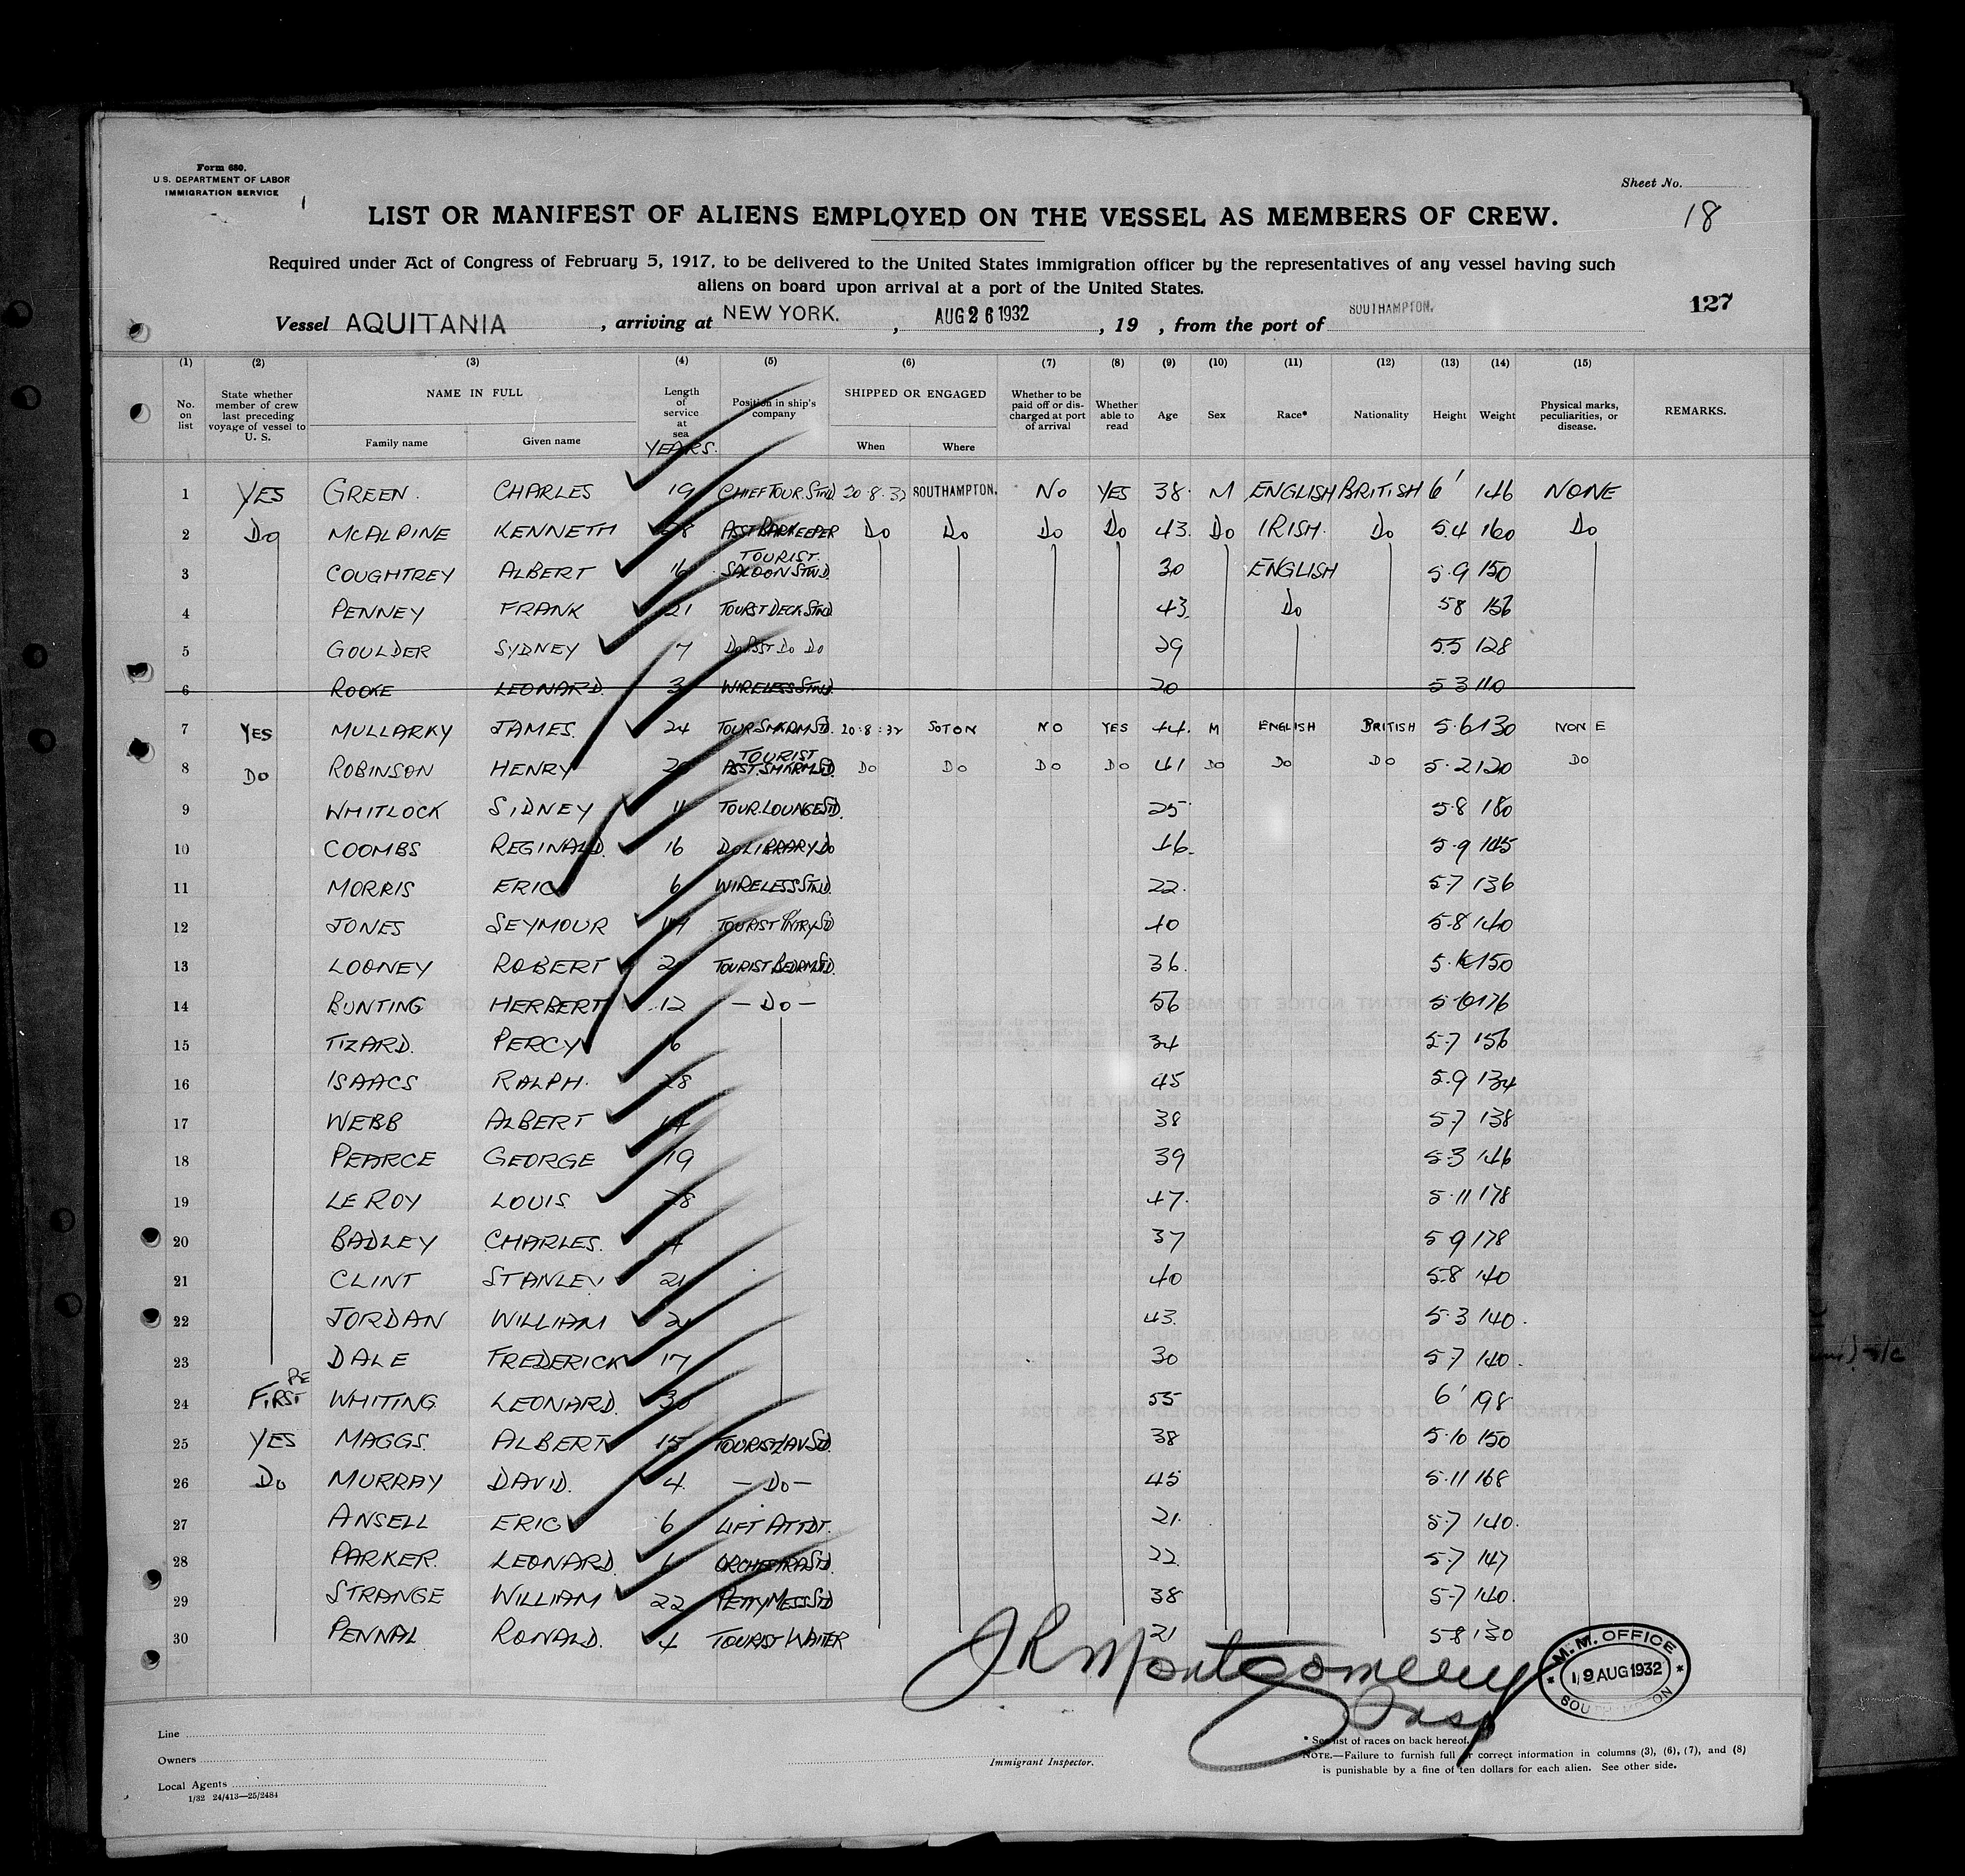 Form 680.
U.S. DEPARTMENT OF LABOR
IMMIGRATION SERVICE
Sheet No.
18
LIST OR MANIFEST OF ALIENS EMPLOYED ON THE VESSEL AS MEMBERS OF CREW.
Required under Act of Congress of February 5, 1917, to be delivered to the United States immigration officer by the representatives of any vessel having such
aliens on board upon arrival at a port of the United States.
127
Vessel AQUITANIA, arriving at NEW YORK., AUG 26 1932, 19 , from the port of SOUTHAMPTON.
(1) (2) (3) (4) (5) (6) (7) (8) (9) (10) (11) (12) (13) (14) (15)
No. on list State whether member of crew last preceding voyage of vessel to U. S. NAME IN FULL Family name Given name Length of service at sea YEARS. Position in ship's company SHIPPED OR ENGAGED When Where Whether to be paid off or discharged at port of arrival Whether able to read Age Sex Race* Nationality Height Weight Physical marks, peculiarities, or disease. REMARKS.
1 YES GREEN. CHARLES 19 CHIEF TOUR. STWD 20.8.32 SOUTHAMPTON. NO YES 38. M ENGLISH BRITISH 6' 146 NONE
2 Do MCALPINE KENNETH 28 ASST BARKEEPER Do Do Do Do 43. Do IRISH. Do 5.4 160 Do
3 COUGHTREY ALBERT 16 TOURIST SALOON STWD. 30 ENGLISH 5.9 150
4 PENNEY FRANK 21 TOURST DECK STWD 43. Do 58 156
5 GOULDER SYDNEY 7 Do ASST Do Do 29 5.5 128
6 ROOKE LEONARD. 3 WIRELESS STWD. 20 5 3 110
7 YES MULLARKY JAMES. 24 TOUR SMKRM SD. 20.8.32 SOTON NO YES 44. M ENGLISH BRITISH 5.6 130 NONE
8 DO ROBINSON HENRY TOURIST ASST. SMKRM SD. DO DO DO DO 41 DO DO DO 5.2 120 DO
9 WHITLOCK SIDNEY 11 TOUR. LOUNGE SD. 25 5.8 180
10 COOMBS REGINALD. 16 DO LIBRARY DO 46. 5.9 145
11 MORRIS ERIC 6 WIRELESS STWD. 22. 5.7 136
12 JONES SEYMOUR TOURIST PNTRY SD 40 5.8 140
13 LOONEY ROBERT TOURIST BEDRM SD. 36. 150
14 BUNTING HERBERT 12 — Do — 56 5.6 176
15 TIZARD. PERCY 16 34 5.7 156
16 ISAACS RALPH. 28 45 5.9 134
17 WEBB ALBERT 14 38 5.7 138
18 PEARCE GEORGE 19 39 5.3 146
19 LE ROY LOUIS 28 47. 5.11 178
20 BADLEY CHARLES. 37 5 9 178
21 CLINT STANLEY 21 40 5.8 140
22 JORDAN WILLIAM 43. 5.3 140.
23 DALE FREDERICK 17 30 5 7 140.
24 RE FIRST WHITING LEONARD. 30 55 6' 198
25 YES MAGGS. ALBERT 15 TOURIST LAV SD. 38 5.10 150
26 Do MURRAY DAVID. 4. — Do — 45 5.11 168
27 ANSELL ERIC 6 LIFT ATTDT. 21. 5.7 140.
28 PARKER. LEONARD. 6 ORCHESTRA SD. 22. 5.7 147
29 STRANGE WILLIAM 22 PETTY MESS SD 38 5.7 140.
30 PENNAL RONALD. 4 TOURIST WAITER 21 58 130
JR Montgomery
Insp
M.M. OFFICE
19 AUG 1932
SOUTHAMPTON
Line
Owners
Local Agents
1/32 24/413—25/2484
Immigrant Inspector.
* See list of races on back hereof.
NOTE.—Failure to furnish full or correct information in columns (3), (6), (7), and (8)
is punishable by a fine of ten dollars for each alien. See other side.